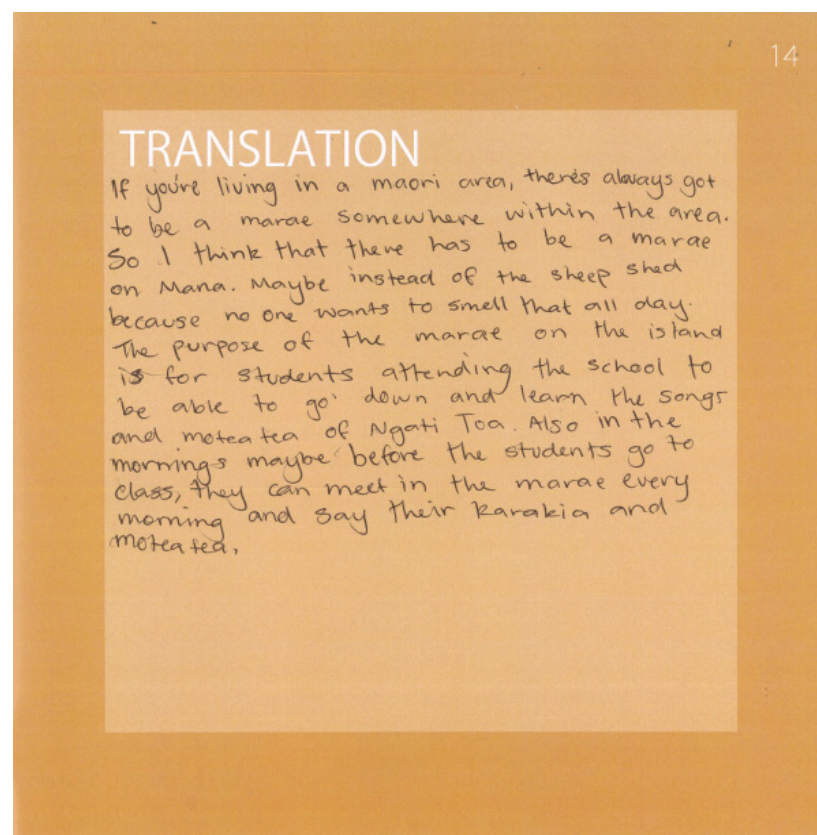 14
TRANSLATION
If you're living in a maori area, there's always got
to be a marae somewhere within the area.
So I think that there has to be a marae
on Mana. Maybe instead of the sheep shed
because no one wants to smell that all day.
The purpose of the marae on the island
is for students attending the school to
be able to go down and learn the songs
and moteatea of Ngati Toa. Also in the
mornings maybe before the students go to
class, they can meet in the marae every
morning and say their karakia and
moteatea.